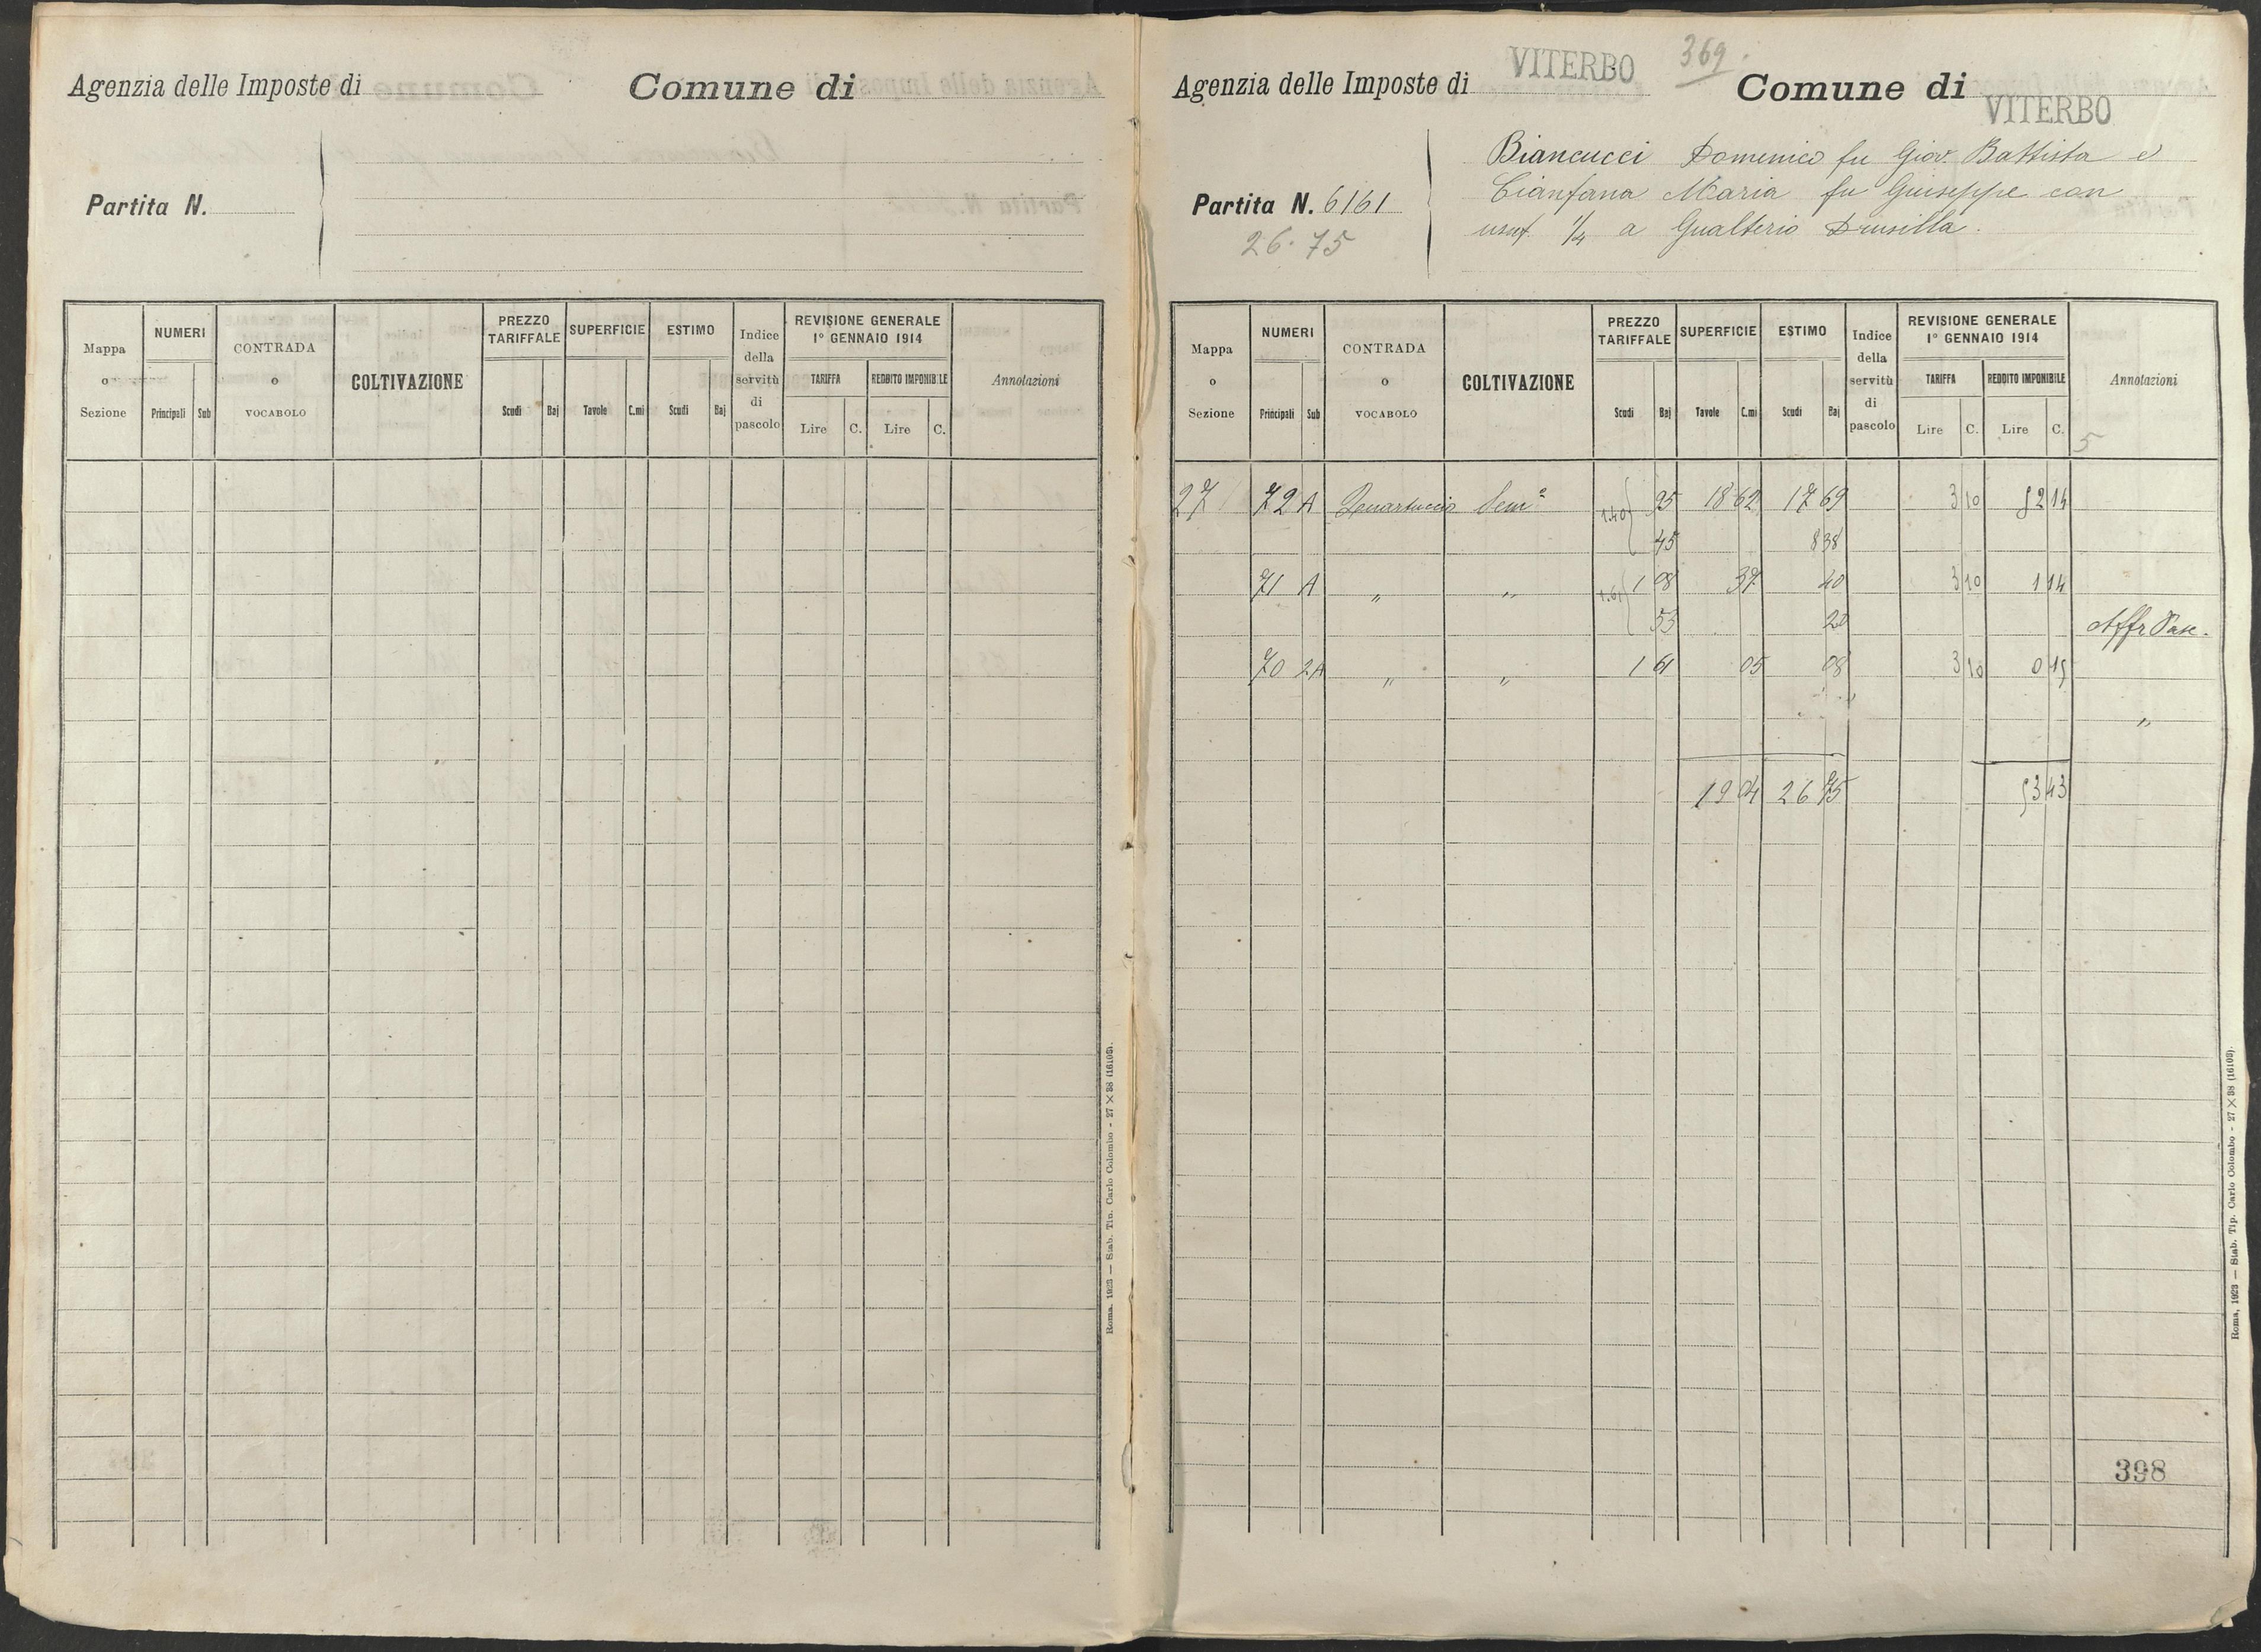 Agenzia delle Imposte di
Comune di
Partita N.
Mappa o Sezione
NUMERI
Principali Sub
CONTRADA o VOCABOLO
COLTIVAZIONE
PREZZO TARIFFALE
Scudi Baj
SUPERFICIE
Tavole C.mi
ESTIMO
Scudi Baj
Indice della servitù di pascolo
REVISIONE GENERALE
1° GENNAIO 1914
TARIFFA
Lire C.
REDDITO IMPONIBILE
Lire C.
Annotazioni
Roma. 1923 — Stab. Tip. Carlo Colombo - 27 X 38 (16103).
369.
Agenzia delle Imposte di VITERBO
Comune di VITERBO
Partita N. 6161
26.75
Biancucci Domenico fu Giov. Battista e
Cianfana Maria fu Giuseppe con
usuf. 1/4 a Gualterio Drusilla.
Mappa o Sezione
NUMERI
Principali Sub
CONTRADA o VOCABOLO
COLTIVAZIONE
PREZZO TARIFFALE
Scudi Baj
SUPERFICIE
Tavole C.mi
ESTIMO
Scudi Baj
Indice della servitù di pascolo
REVISIONE GENERALE
1° GENNAIO 1914
TARIFFA
Lire C.
REDDITO IMPONIBILE
Lire C.
Annotazioni
5
27 72 A Quartuccio Sem.e 1.40 95 18 62 17 69 3 10 52 14
45 8 38
71 A " " 1.61 1 08 37 40 3 10 1 14
53 20 Affr Pasc.
70 2A " " 1 61 05 08 3 10 0 15
"
19 04 26 75 53 43
398
Roma, 1923 — Stab. Tip. Carlo Colombo - 27 X 38 (16103).